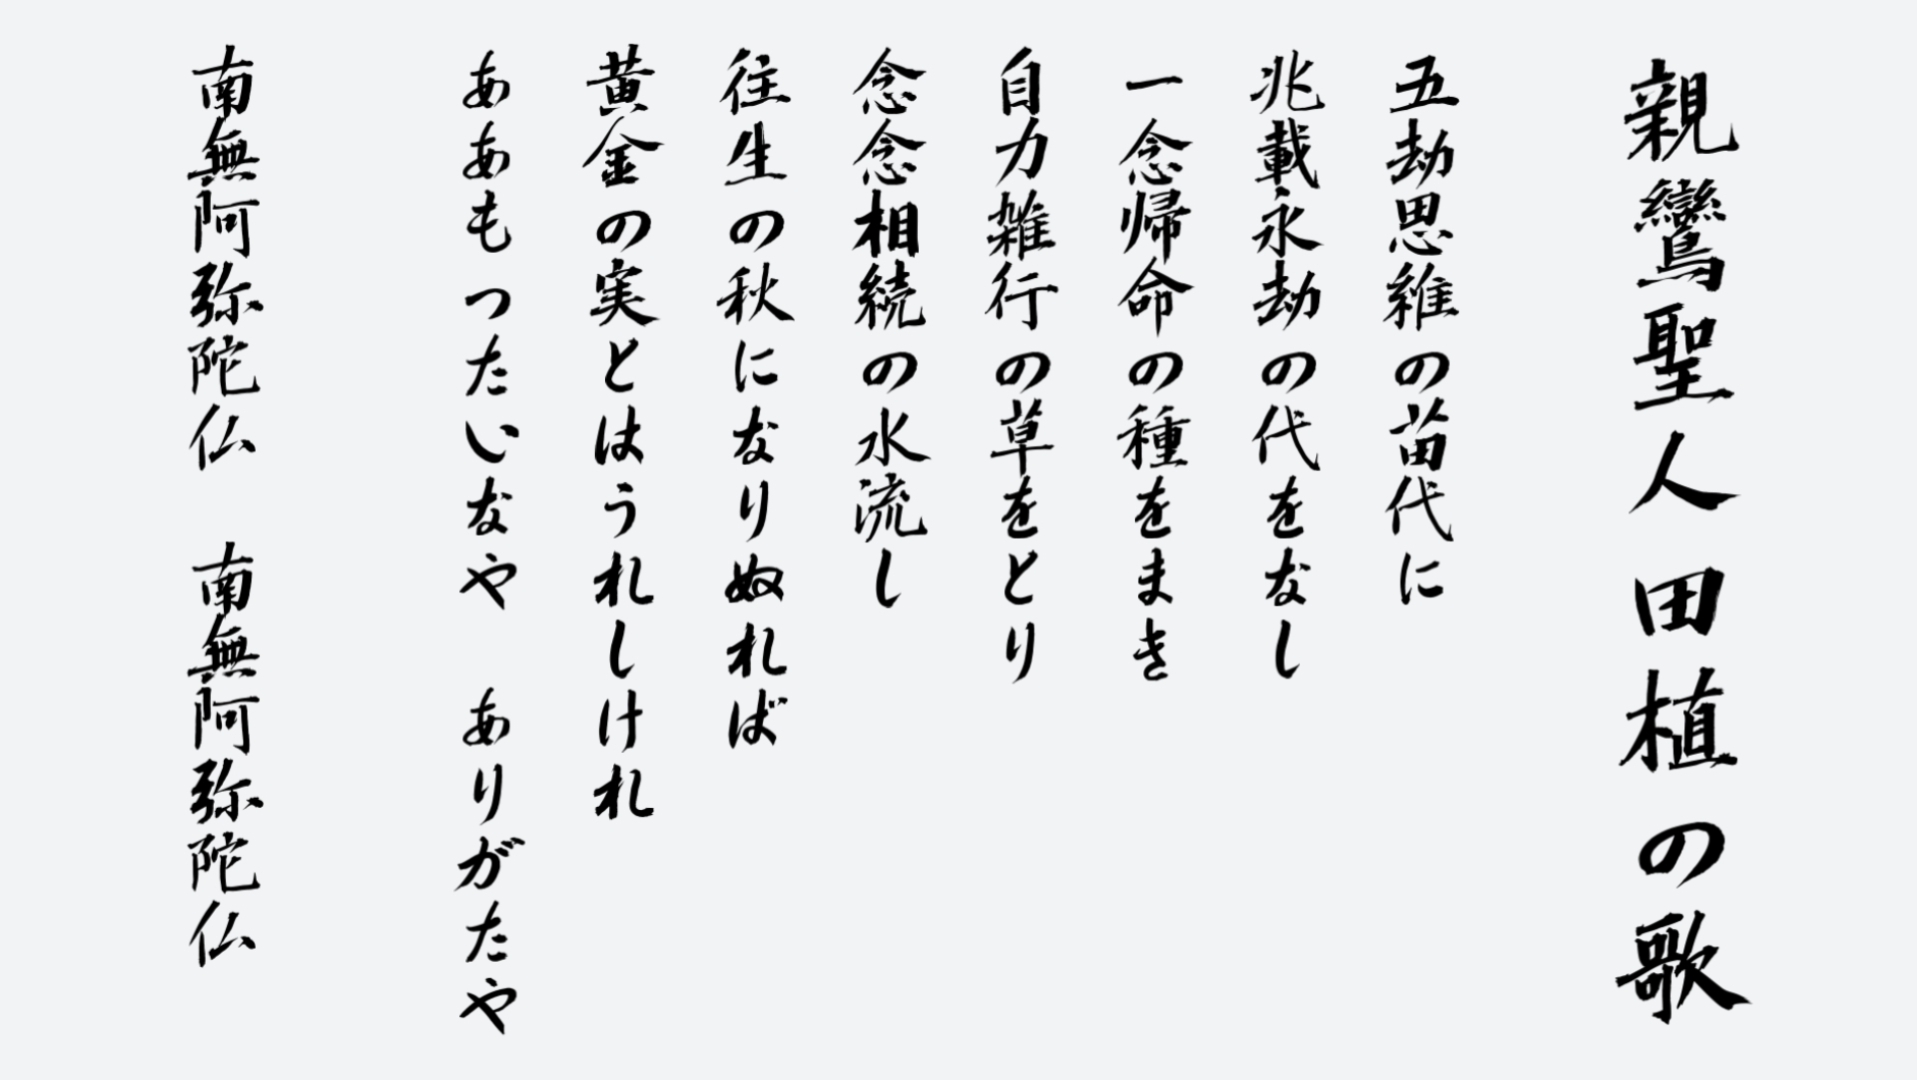 親鸞聖人田植の歌
五劫思維の苗代に
兆載永劫の代をなし
一念帰命の種をまき
自力雑行の草をとり
念念相続の水流し
往生の秋になりぬれば
黄金の実とはうれしけれ
ああもったいなや　ありがたや
南無阿弥陀仏　南無阿弥陀仏